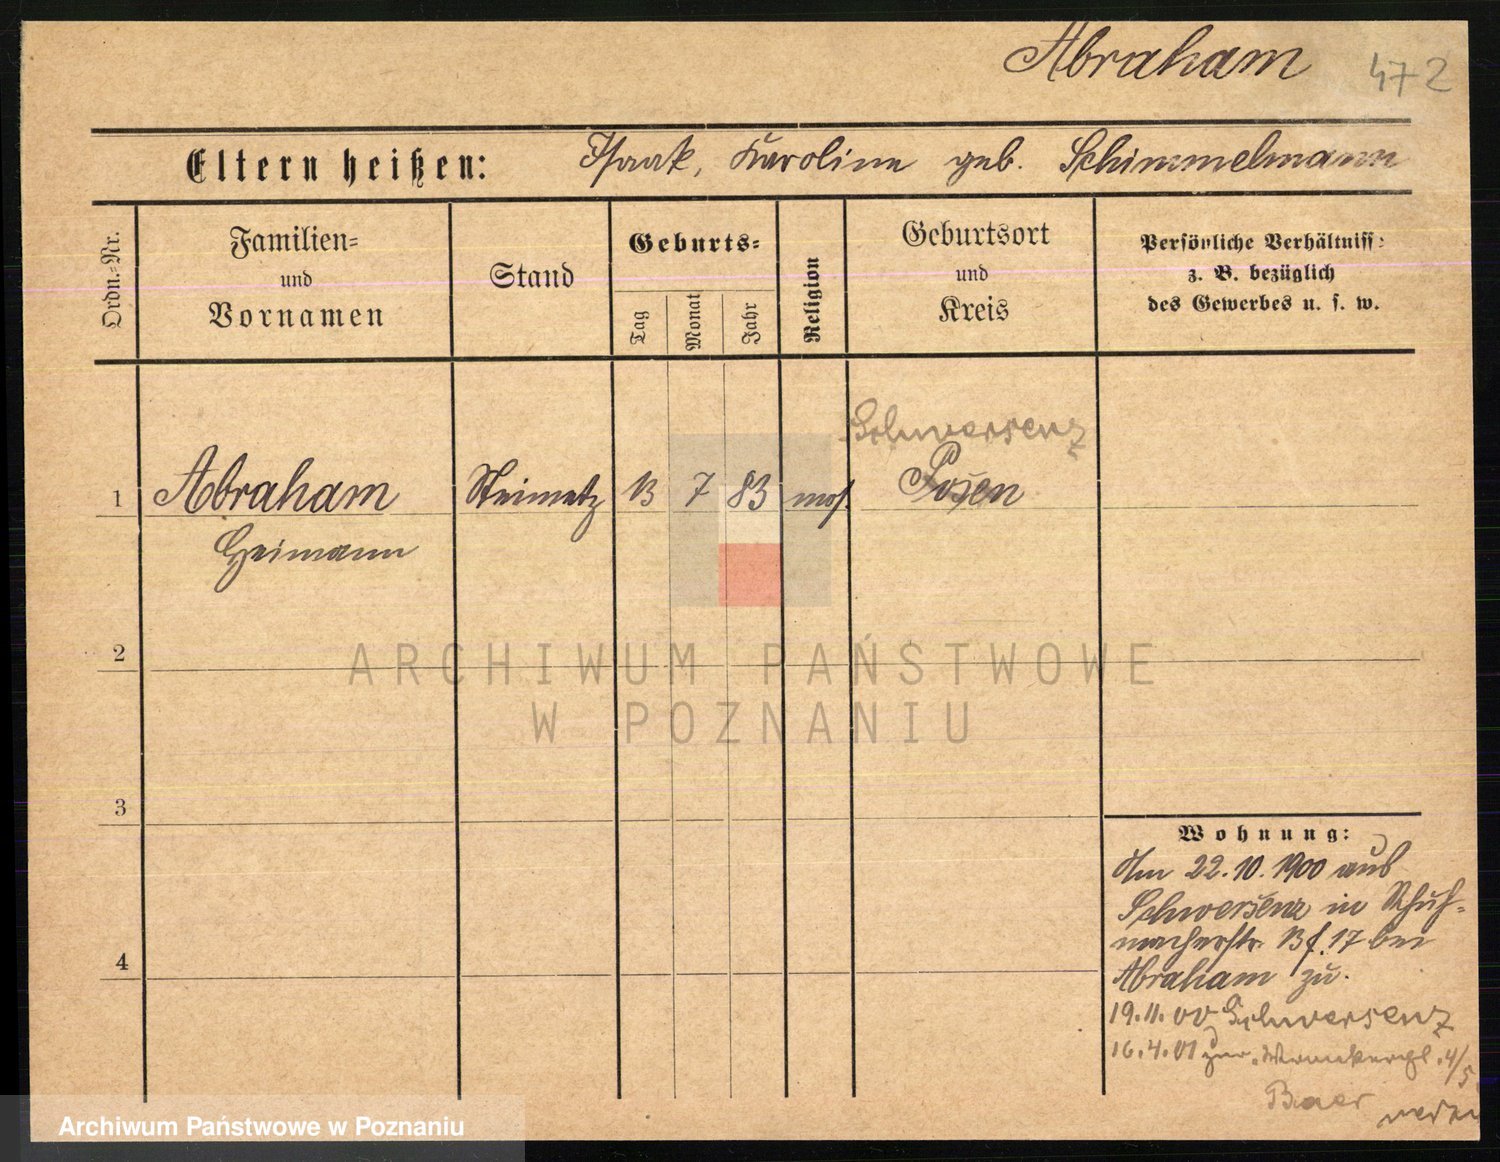 Abraham 472
Eltern heißen: Isaak, Karoline geb. Schimmelmann
Ordn.-Nr.
Familien-
und
Vornamen
Stand
Geburts-
Tag
Monat
Jahr
Religion
Geburtsort
und
Kreis
Persönliche Verhältnisse
z. B. bezüglich
des Gewerbes u. s. w.
Schwersenz
1 Abraham Steimetz 13 7 83 mos. Posen
Heimann
2
ARCHIWUM PAŃSTWOWE
W POZNANIU
3
Wohnung:
Am 22.10.1900 aus
Schwersenz in Schuh-
macherstr. 13 f. 17 bei
Abraham zu.
19.11.00 Schwersenz
16.4.01 zur. 4/5
Baer
4
Archiwum Państwowe w Poznaniu